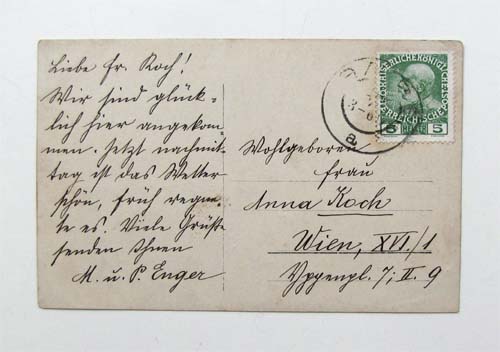 Liebe Fr. Koch!
Wir sind glück-
lich hier angekom
men. Jetzt nachmit-
tag ist das Wetter
schön, früh regne-
te es. Viele Grüße
senden Ihnen
M. u. P. Enger
Wohlgeboren
Frau
Anna Koch
Wien, XVI/1
Yppenpl. 7; II. 9
KAISERLICHE KÖNIGLICHE
ÖSTERREICHISCHE POST
5 5
a